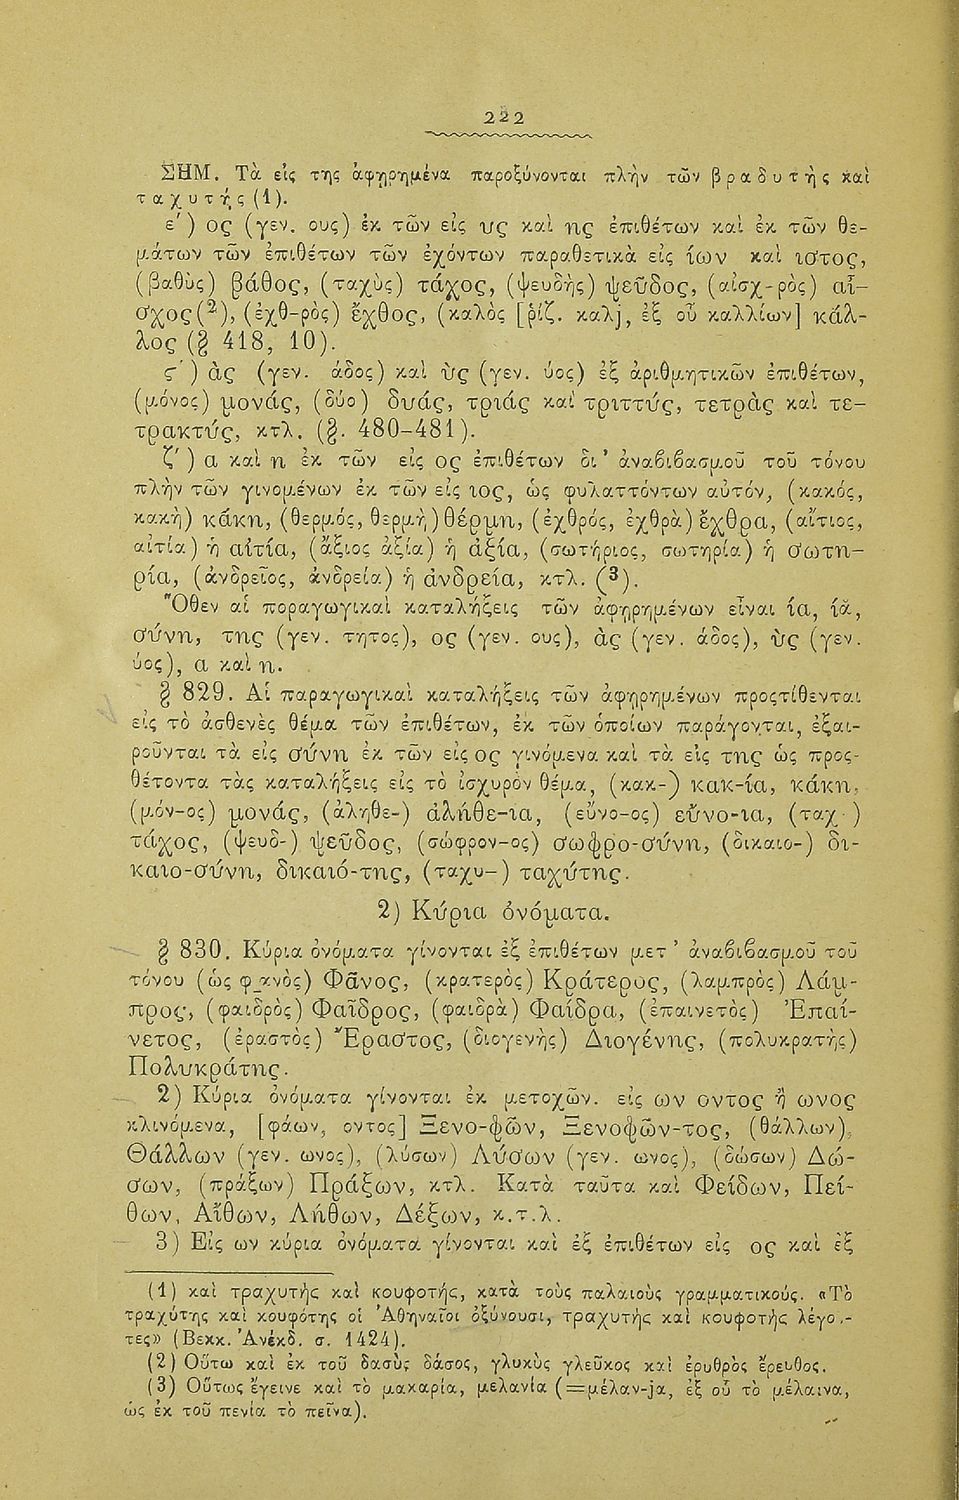 222
ΣΗΜ. Τὰ εἰς της ἀφῃρημένα παροξύνονται πλὴν τῶν βραδυτὴς καὶ
ταχυτής (1).
ε΄) ος (γεν. ους) ἐκ τῶν εἰς υς καὶ ης ἐπιθέτων καὶ ἐκ τῶν θε-
μάτων τῶν ἐπιθέτων τῶν ἐχόντων παραθετικὰ εἰς ίων καὶ ιστος,
(βαθὺς) βάθος, (ταχὺς) τάχος, (ψευδὴς) ψεῦδος, (αἰσχ-ρὸς) αἶ-
σχος(2), (ἐχθ-ρὸς) ἔχθος, (καλὸς [ῥίζ. καλj, ἐξ οὗ καλλίων] κάλ-
λος (§ 418, 10).
ς΄) ὰς (γεν. άδος) καὶ ὺς (γεν. ύος) ἐξ ἀριθμητικῶν ἐπιθέτων,
(μόνος) μονάς, (δύο) δυάς, τριάς καὶ τριττύς, τετρὰς καὶ τε-
τρακτύς, κτλ. (§. 480-481).
ζ΄) α καὶ η ἐκ τῶν εἰς ος ἐπιθέτων δι᾽ ἀναβιβασμοῦ τοῦ τόνου
πλὴν τῶν γινομένων ἐκ τῶν εἰς ιος, ὡς φυλαττόντων αὐτόν, (κακός,
κακὴ) κάκη, (θερμός, θερμὴ) θέρμη, (ἐχθρός, ἐχθρὰ) ἔχθρα, (αἴτιος,
αἰτία) ἡ αἰτία, (ἄξιος ἀξία) ἡ ἀξία, (σωτήριος, σωτηρία) ἡ σωτη-
ρία, (ἀνδρεῖος, ἀνδρεία) ἡ ἀνδρεία, κτλ. (3).
Ὅθεν αἱ ποραγωγικαὶ καταλήξεις τῶν ἀφῃρημένων εἶναι ία, ιᾰ,
σύνη, της (γεν. τητος), ος (γεν. ους), ὰς (γεν. άδος), ὺς (γεν.
ύος), α καὶ η.
§ 829. Αἱ παραγωγικαὶ καταλήξεις τῶν ἀφῃρημένων προςτίθενται
εἰς τὸ ἀσθενὲς θέμα τῶν ἐπιθέτων, ἐκ τῶν ὁποίων παράγονται, ἐξαι-
ροῦνται τὰ εἰς σύνη ἐκ τῶν εἰς ος γινόμενα καὶ τὰ εἰς της ὡς προς-
θέτοντα τὰς καταλήξεις εἰς τὸ ἰσχυρὸν θέμα, (κακ-) κακ-ία, κάκη,
(μόν-ος) μονάς, (ἀληθε-) ἀλήθε-ια, (εὔνο-ος) εὔνο-ια, (ταχ-)
τάχος, (ψευδ-) ψεῦδος, (σώφρον-ος) σωφρο-σύνη, (δικαιο-) δι-
καιο-σύνη, δικαιό-της, (ταχυ-) ταχύτης.
2) Κύρια ὀνόματα.
§ 830. Κύρια ὀνόματα γίνονται ἐξ ἐπιθέτων μετ᾽ ἀναβιβασμοῦ τοῦ
τόνου (ὡς φανὸς) Φᾶνος, (κρατερὸς) Κράτερος, (λαμπρὸς) Λάμ-
προς, (φαιδρὸς) Φαῖδρος, (φαιδρὰ) Φαίδρα, (ἐπαινετὸς) Ἐπαί-
νετος, (ἐραστὸς) Ἔραστος, (διογενὴς) Διογένης, (πολυκρατὴς)
Πολυκράτης.
2) Κύρια ὀνόματα γίνονται ἐκ μετοχῶν. εἰς ων οντος ἢ ωνος
κλινόμενα, [φάων, οντος] Ξενο-φῶν, Ξενοφῶν-τος, (θάλλων),
Θάλλων (γεν. ωνος), (λύσων) Λύσων (γεν. ωνος), (δώσων) Δώ-
σων, (πράξων) Πράξων, κτλ. Κατὰ ταῦτα καὶ Φείδων, Πεί-
θων, Αἴθων, Λήθων, Δέξων, κ.τ.λ.
3) Εἰς ων κύρια ὀνόματα γίνονται καὶ ἐξ ἐπιθέτων εἰς ος καὶ ἐξ
(1) καὶ τραχυτὴς καὶ κουφοτής, κατὰ τοὺς παλαιοὺς γραμματικούς. «Τὸ
τραχύτης καὶ κουφότης οἱ Ἀθηναῖοι ὀξύνουσι, τραχυτὴς καὶ κουφοτὴς λέγο.-
τες» (Βεκκ. Ἀνέκδ. σ. 1424).
(2) Οὕτω καὶ ἐκ τοῦ δασὺς δάσος, γλυκὺς γλεῦκος καὶ ἐρυθρὸς ἔρευθος.
(3) Οὕτως ἔγεινε καὶ τὸ μακαρία, μελανία (=μέλαν-jα, ἐξ οὗ τὸ μέλαινα,
ὡς ἐκ τοῦ πενία τὸ πεῖνα).